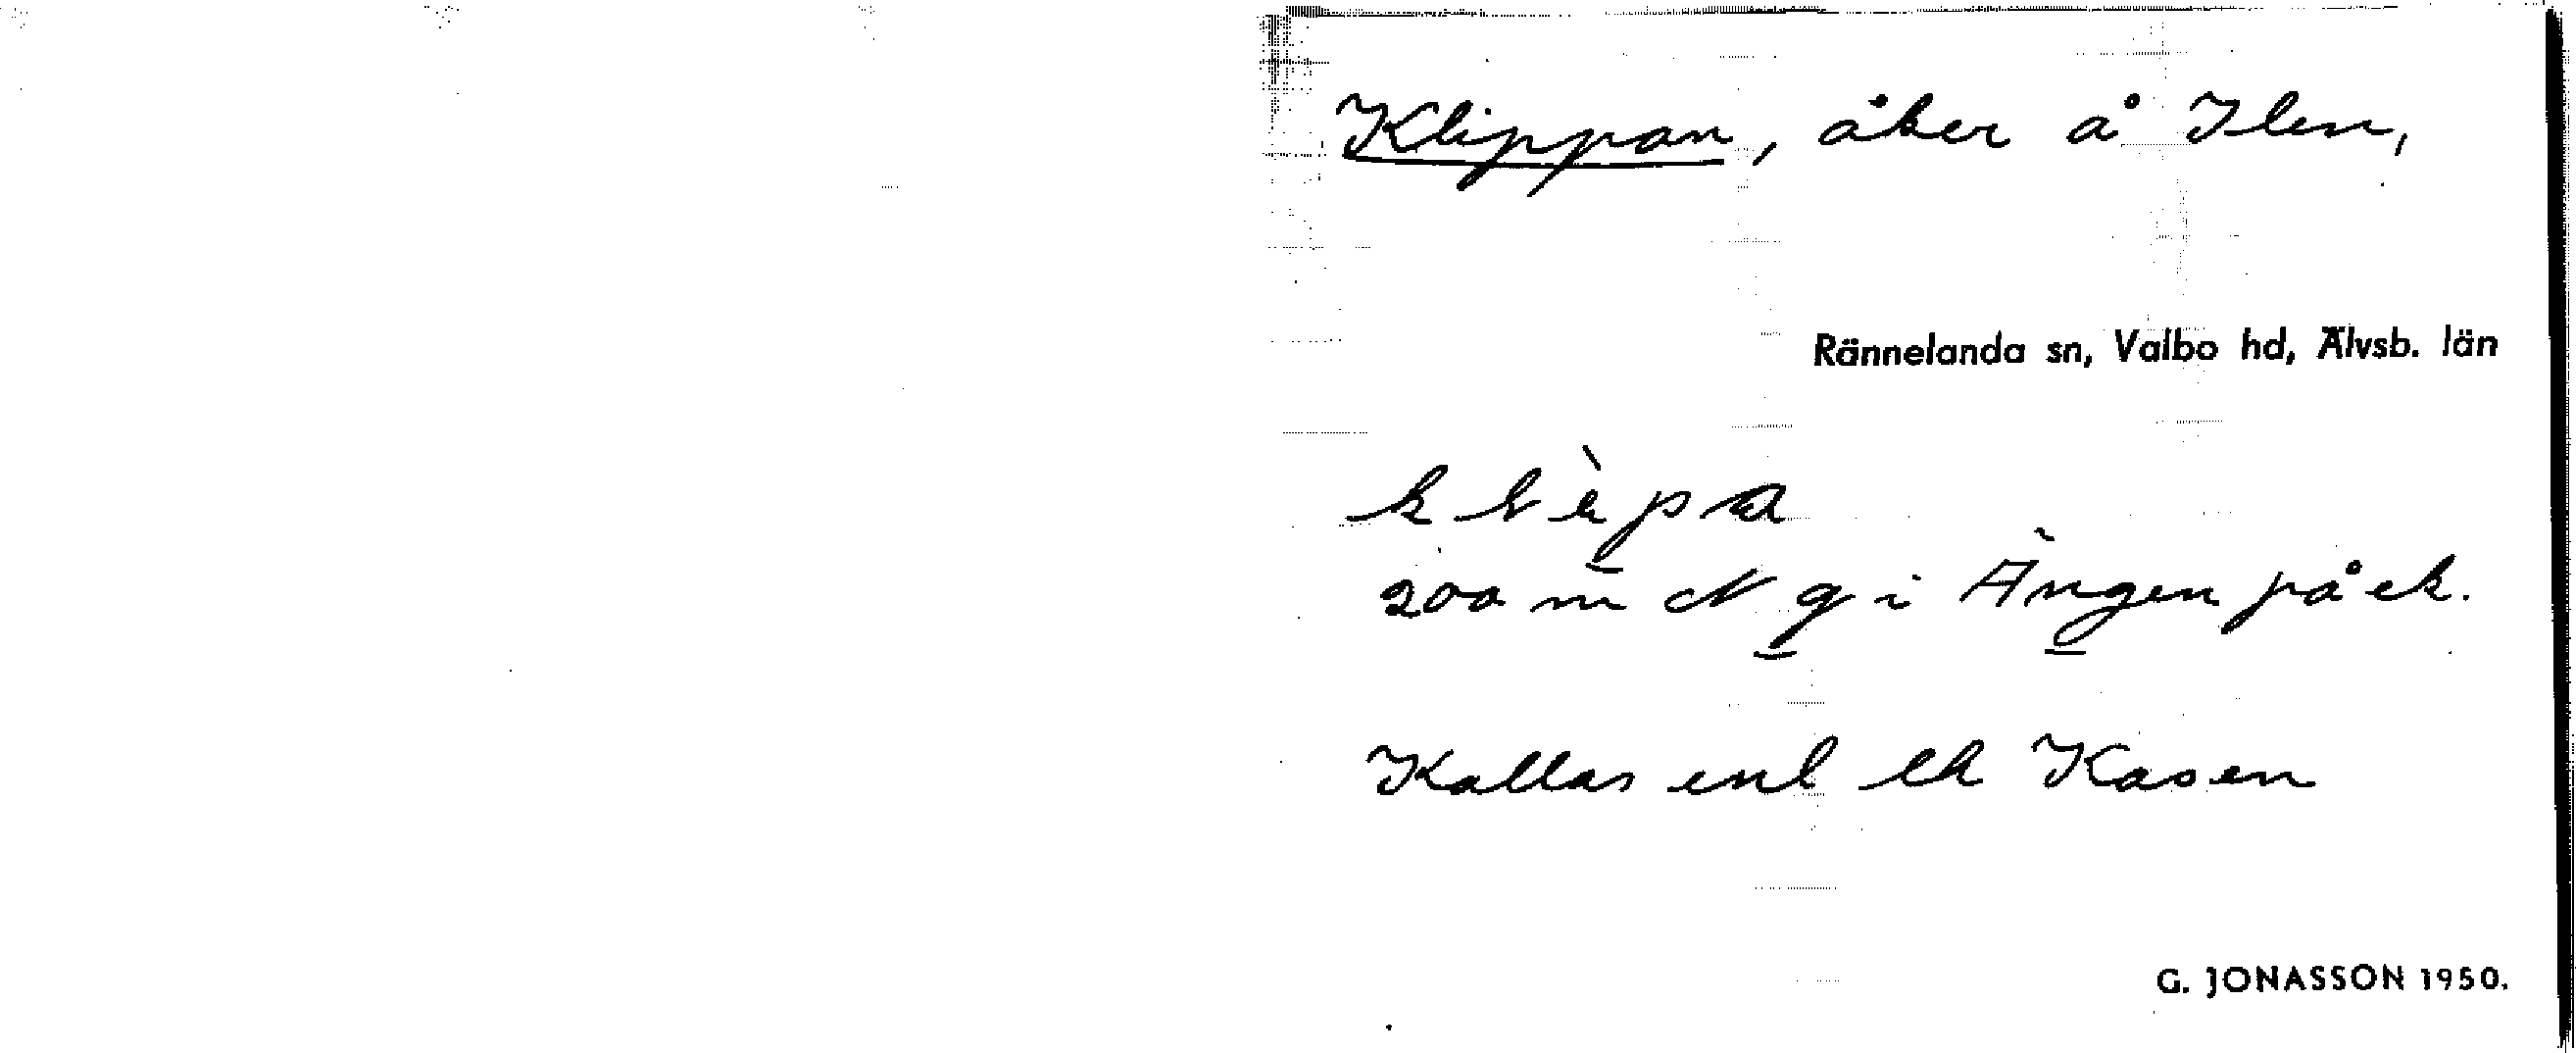 Klippan, åker å Ilen,
Rännelanda sn, Valbo hd, Älvsb. län
klèpa
200 m N g i Ängen på ek.
Kallas enl ek Kasen
G. JONASSON 1950.